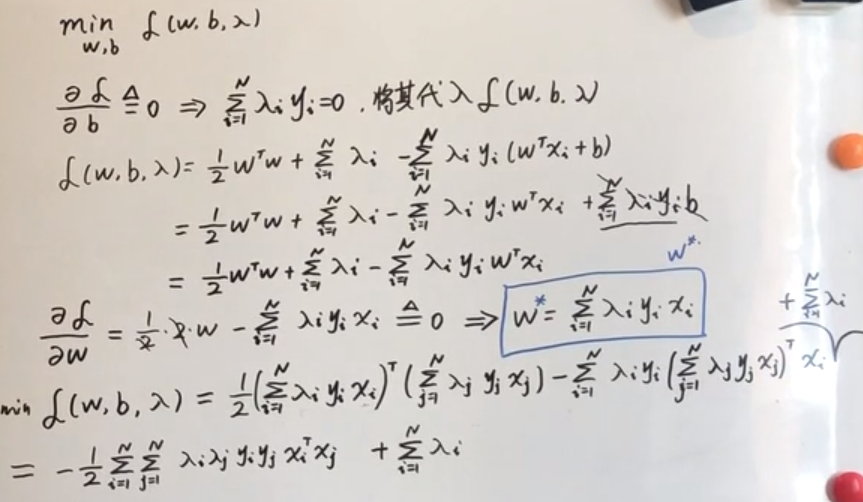 min_{w,b} ℒ(w,b,λ)
∂ℒ/∂b ≜ 0 ⇒ ∑_{i=1}^{N} λ_i y_i = 0 . 将其代入 ℒ(w,b,λ)
ℒ(w,b,λ) = 1/2 w^T w + ∑_{i=1}^{N} λ_i - ∑_{i=1}^{N} λ_i y_i (w^T x_i + b)
= 1/2 w^T w + ∑_{i=1}^{N} λ_i - ∑_{i=1}^{N} λ_i y_i w^T x_i + ∑_{i=1}^{N} λ_i y_i b
= 1/2 w^T w + ∑_{i=1}^{N} λ_i - ∑_{i=1}^{N} λ_i y_i w^T x_i
w*.
∂ℒ/∂w = 1/2 · 2 · w - ∑_{i=1}^{N} λ_i y_i x_i ≜ 0 ⇒ w* = ∑_{i=1}^{N} λ_i y_i x_i
+ ∑_{i=1}^{N} λ_i
min ℒ(w,b,λ) = 1/2 (∑_{i=1}^{N} λ_i y_i x_i)^T (∑_{j=1}^{N} λ_j y_j x_j) - ∑_{i=1}^{N} λ_i y_i (∑_{j=1}^{N} λ_j y_j x_j)^T x_i
= - 1/2 ∑_{i=1}^{N} ∑_{j=1}^{N} λ_i λ_j y_i y_j x_i^T x_j + ∑_{i=1}^{N} λ_i